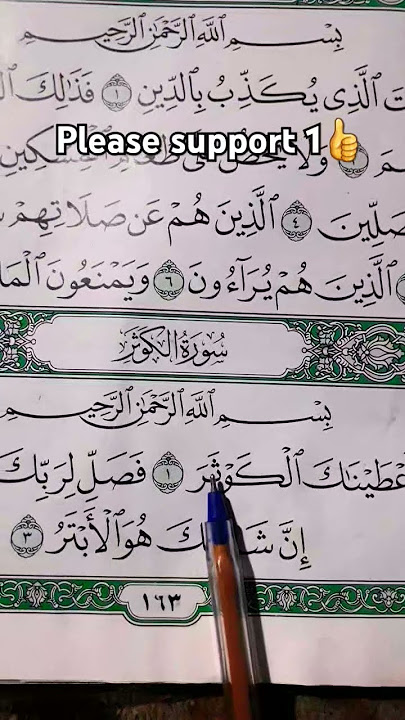 بِسْمِ ٱللَّهِ ٱلرَّحْمَٰنِ ٱلرَّحِيمِ
ٱلَّذِي يُكَذِّبُ بِٱلدِّينِ ١ فَذَٰلِكَ
Please support 1👍
وَلَا يَحُضُّ
صَلِّينَ ٤ ٱلَّذِينَ هُمْ عَن صَلَاتِهِمْ
ٱلَّذِينَ هُمْ يُرَآءُونَ ٦ وَيَمْنَعُونَ ٱلْمَا
سُورَةُ ٱلْكَوْثَرِ
بِسْمِ ٱللَّهِ ٱلرَّحْمَٰنِ ٱلرَّحِيمِ
عْطَيْنَاكَ ٱلْكَوْثَرَ ١ فَصَلِّ لِرَبِّكَ
إِنَّ هُوَ ٱلْأَبْتَرُ ٣
١٦٣